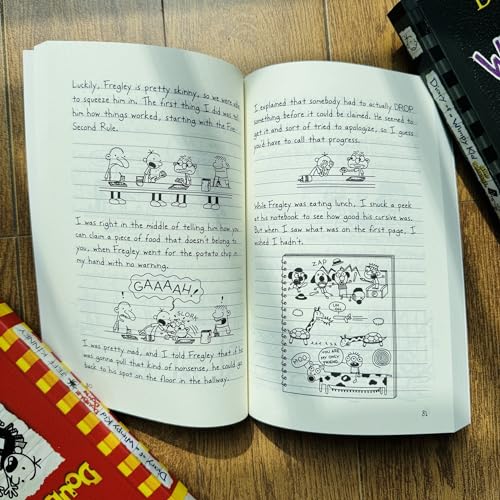 Luckily, Fregley is pretty skinny, so we were able
to squeeze him in. The first thing I did was tell
him how things worked, starting with the Five-
Second Rule.
I was right in the middle of telling him how you
can claim a piece of food that doesn't belong to
you, when Fregley went for the potato chip in
my hand with no warning.
GAAAAH!
SLORK
I was pretty mad, and I told Fregley that if he
was gonna pull that kind of nonsense, he could go
back to his spot on the floor in the hallway.
I explained that somebody had to actually DROP
something before it could be claimed. He seemed to
get it and sort of tried to apologize, so I guess
you'd have to call that progress.
While Fregley was eating lunch, I snuck a peek
at his notebook to see how good his cursive was.
But when I saw what was on the first page, I
wished I hadn't.
ZAP
MOO
YOU ARE
MY ONLY
FRIEND.
81
Diary of a Wimpy Kid
Diary of a Wimpy Kid
JEFF KINNEY
Do